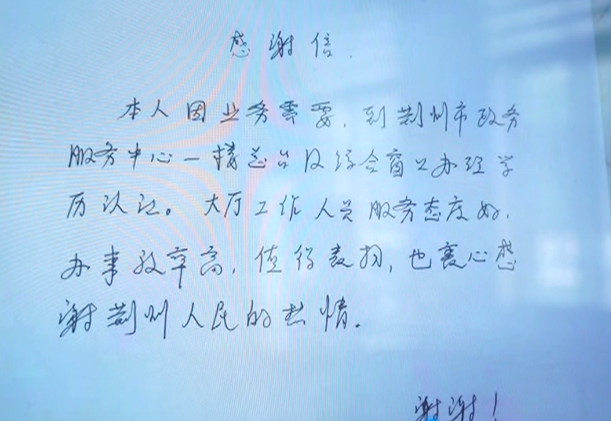 感谢信.
本人因业务需要,到荆州市政务
服务中心一楼总台及综合窗口办理学
历认证。大厅工作人员服务态度好,
办事效率高,值得表扬,也衷心感
谢荆州人民的热情。
谢谢!